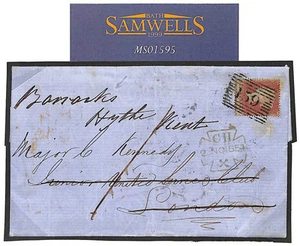 BATH
SAMWELLS
1999
MS01595
Barracks
Hythe Kent
Major C Kennedy
Junior United Service Club
London